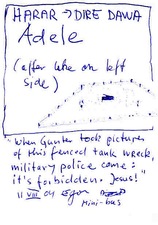 HARAR → DIRE DAWA
Adele
(after lake on left
side)
"When Gunter took pictures
of this fenced tank wreck,
military police came:
it's forbidden. Jesus!"
11 VIII 04
Mini-bus